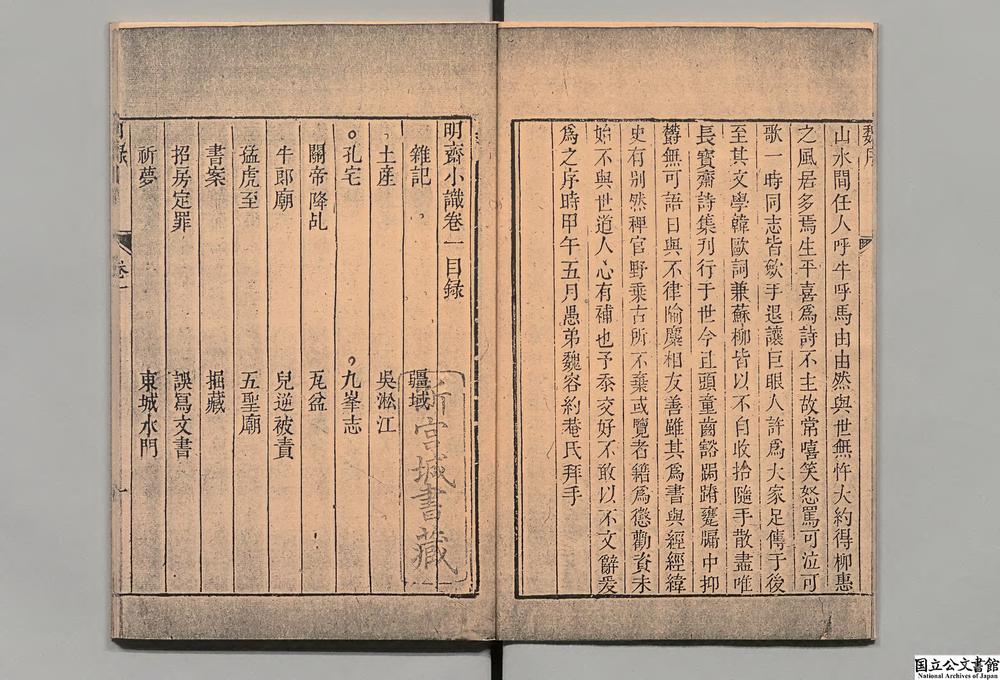 魏序
山水間任人呼牛呼馬由由然與世無忤大約得柳惠
之風居多焉生平喜爲詩不主故常嘻笑怒罵可泣可
歌一時同志皆斂手退讓巨眼人許爲大家足傳于後
至其文學韓歐詞兼蘇柳皆以不自收拾隨手散盡唯
長寶齋詩集刋行于世今且頭童齒豁跼蹐甕牖中抑
欝無可語日與不律隃麋相友善雖其爲書與經經緯
史有别然稗官野乗古所不棄或覽者籍爲懲勸資未
始不與世道人心有補也予忝交好不敢以不文辭爰
爲之序時甲午五月愚弟魏容約菴氏拜手
明齋小識卷一目録
雜記
疆域
土産
吳淞江
孔宅
九峯志
關帝降乩
瓦盆
牛郎廟
兒逆被責
猛虎至
五聖廟
書案
掘藏
招房定罪
誤寫文書
祈夢
東城水門
卷一
一
新宮城書藏
国立公文書館
National Archives of Japan